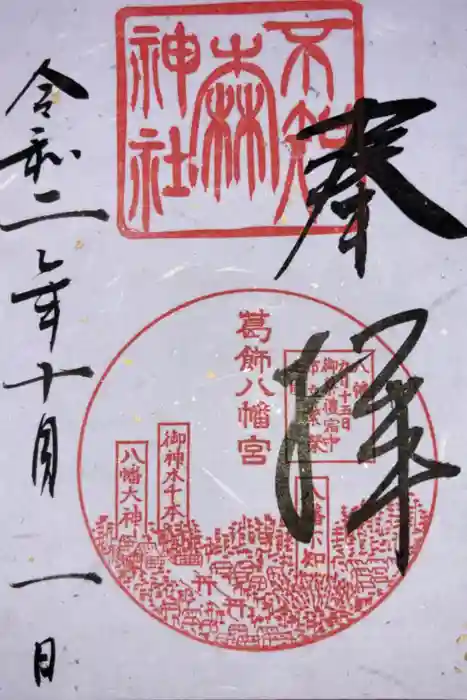 奉拝
不知
森
神社
葛飾八幡宮
八幡
九月十五日
御神木千本
八幡大神
令和二年十月一日